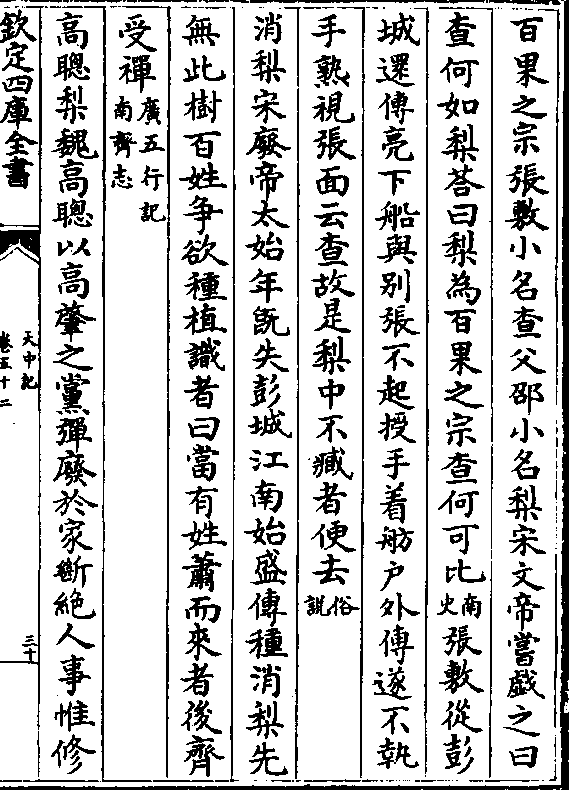 百果之宗張敷小名查父邵小名梨宋文帝嘗戯之曰
查何如梨荅曰梨為百果之宗查何可比南史張敷從彭
城還傅亮下船與别張不起授手着舫户外傅遂不執
手熟視張面云查故是梨中不臧者便去俗説
消梨宋廢帝太始年旣失彭城江南始盛傳種消梨先
無此樹百姓争欲種植識者曰當有姓蕭而來者後齊
受禪廣五行記南齊志
高聰梨魏高聰以高肇之黨彈廢於家斷絶人事惟修
欽定四庫全書
天中記
卷五十二
三十